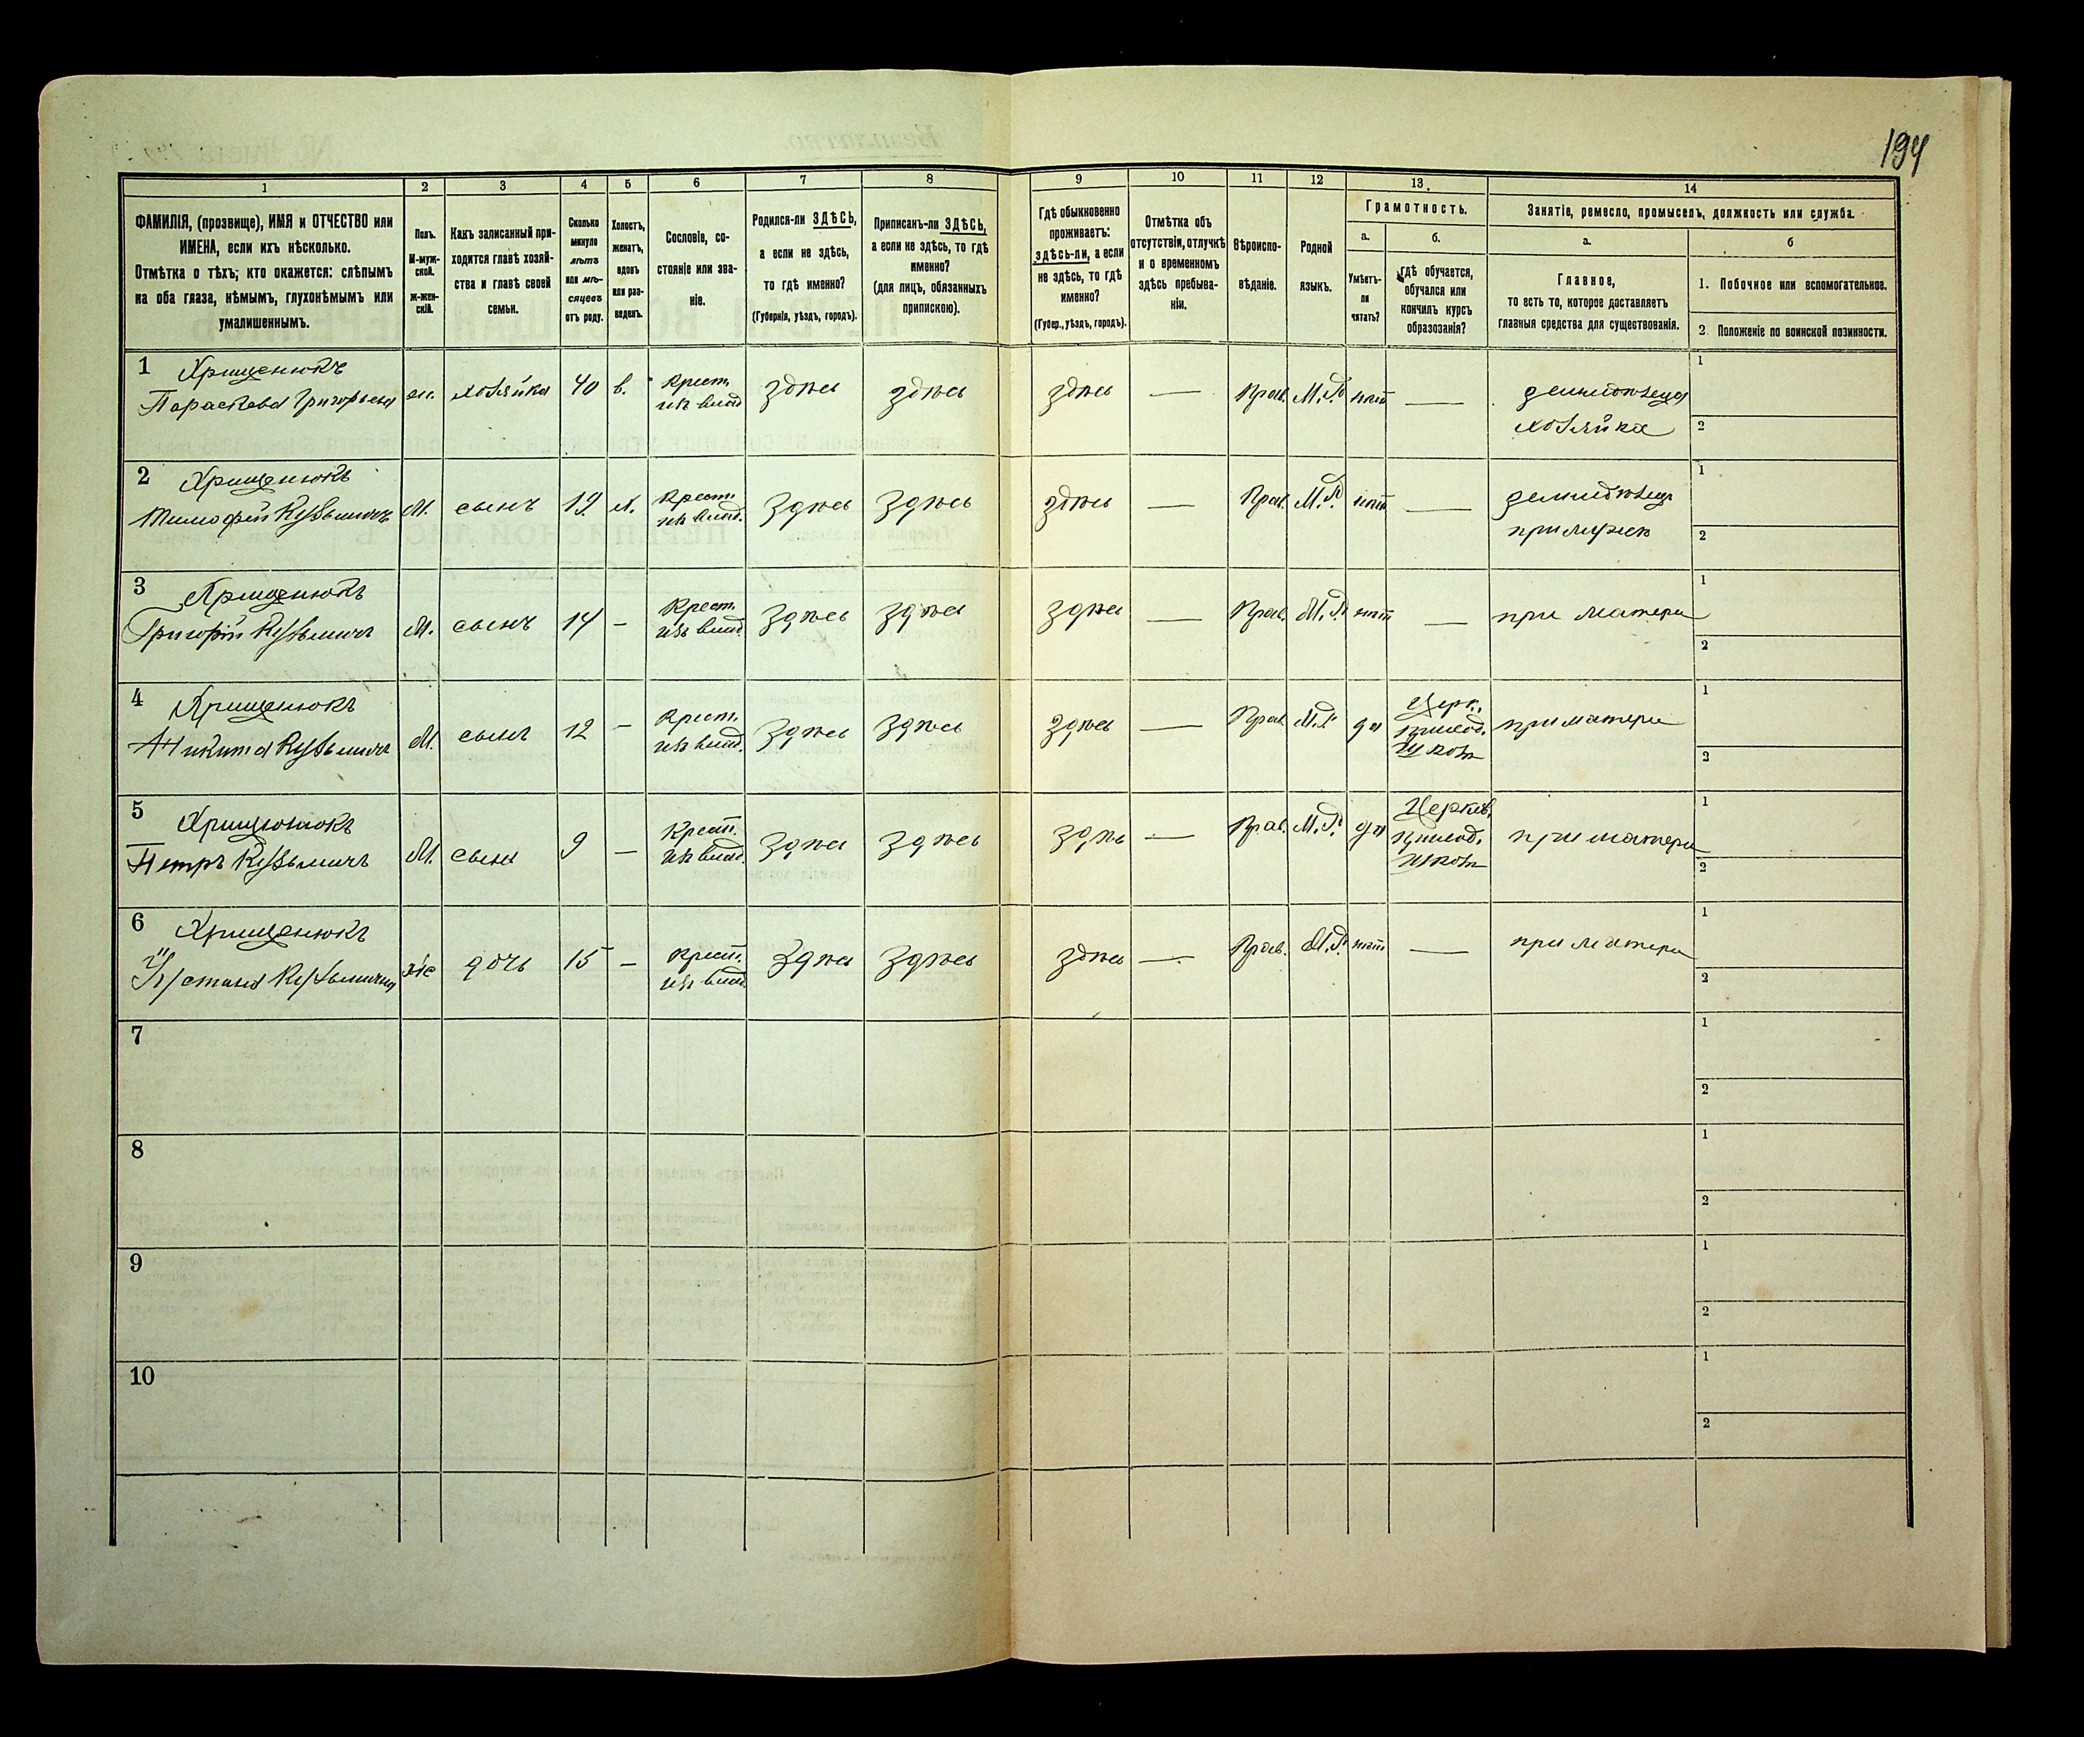 194
1
2
3
4
5
6
7
8
9
10
11
12
13.
14
ФАМИЛІЯ, (прозвище), ИМЯ и ОТЧЕСТВО или
ИМЕНА, если ихъ нѣсколько.
Отмѣтка о тѣхъ; кто окажется: слѣпымъ
на оба глаза, нѣмымъ, глухонѣмымъ или
умалишеннымъ.
Полъ.
М-муж-
ской.
ж-жен-
скій.
Какъ записанный при-
ходится главѣ хозяй-
ства и главѣ своей
семьи.
Сколько
минуло
лѣтъ
или мѣ-
сяцевъ
отъ роду.
Холостъ,
женатъ,
вдовъ
или раз-
веденъ.
Сословіе, со-
стояніе или зва-
ніе.
Родился-ли ЗДѢСЬ,
а если не здѣсь,
то гдѣ именно?
(Губернія, уѣздъ, городъ).
Приписанъ-ли ЗДѢСЬ,
а если не здѣсь, то гдѣ
именно?
(для лицъ, обязанныхъ
припискою).
Гдѣ обыкновенно
проживаетъ:
здѣсь-ли, а если
не здѣсь, то гдѣ
именно?
(Губер., уѣздъ, городъ).
Отмѣтка объ
отсутствіи, отлучкѣ
и о временномъ
здѣсь пребыва-
ніи.
Вѣроиспо-
вѣданіе.
Родной
языкъ.
Грамотность.
а.
Умѣетъ-
ли
читать?
б.
гдѣ обучается,
обучался или
кончилъ курсъ
образозанія?
Занятіе, ремесло, промыселъ, должность или служба.
а.
Главное,
то есть то, которое доставляетъ
главныя средства для существованія.
б
1. Побочное или вспомогательное.
2. Положеніе по воинской повинности.
1
Хрищенюкъ
Параскева Григорьева
ж.
хозяйка
40
в.
Крест.
изъ влад
здѣсь
здѣсь
здѣсь
—
Прав.
М.Р.
нѣт
—
земледѣлица
хозяйка
1
2
2
Хрищенюкъ
Тимофей Кузьмичъ
М.
сынъ
19
х.
Крест.
изъ влад.
Здѣсь
Здѣсь
здѣсь
—
Прав.
М.Р.
нѣт
—
1
2
3
Хрищенюкъ
Григорій Кузьмичъ
М.
сынъ
14
—
Крест.
изъ влад.
Здѣсь
Здѣсь
Здѣсь
—
Прав.
М.Р.
нѣт
—
при матери
1
2
4
Хрищенюкъ
Никита Кузьмичъ
М.
сынъ
12
—
Крест.
изъ влад.
Здѣсь
Здѣсь
Здѣсь
—
Прав.
М.Р.
да
Церк.
приход.
школѣ
при матери
1
2
5
Хрищенюкъ
Петръ Кузьмичъ
М.
сынъ
9
—
Крест.
изъ влад.
Здѣсь
Здѣсь
Здѣсь
—
Прав.
М.Р.
да
Церков.
приход.
школѣ
при матери
1
2
6
Хрищенюкъ
Устина Кузьмична
Же
дочь
15
—
Крест.
изъ влад.
Здѣсь
Здѣсь
здѣсь
—
Прав.
М.Р.
нѣт
—
при матери
1
2
7
1
2
8
1
2
9
1
2
10
1
2